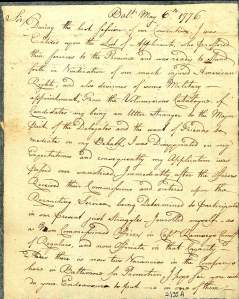 Balt.º May 6th 1776
Sir,
During the last session of our Convention, I was
Entitled upon the List of Applicants, who proffered
their services to the Province and was ready to stand
forth in Vindication of our much injured American
Rights, and also desirous of some Military
appointment, From the Voluminous Catalogue of
Candidates my being an utter Stranger to the Major
part of the Delegates and the want of Friends to
mediate in my Behalf, I was Disappointed in my
Expectations and consequently my Application was
passed over unnoticed, immediately after the officers
Received their Commissions and entered upon the
Recruiting Service being determined to participate
in our present just Struggle, I enrolled myself as
a Non Commissioned Officer in Capt Ramsey's Comp'y
of Regulars, and now officiate in that Capacity
there is now two Vacancies in the Companies
here in Baltimore for Promotion, I hope you will
do your Endeavours to get me in one of them